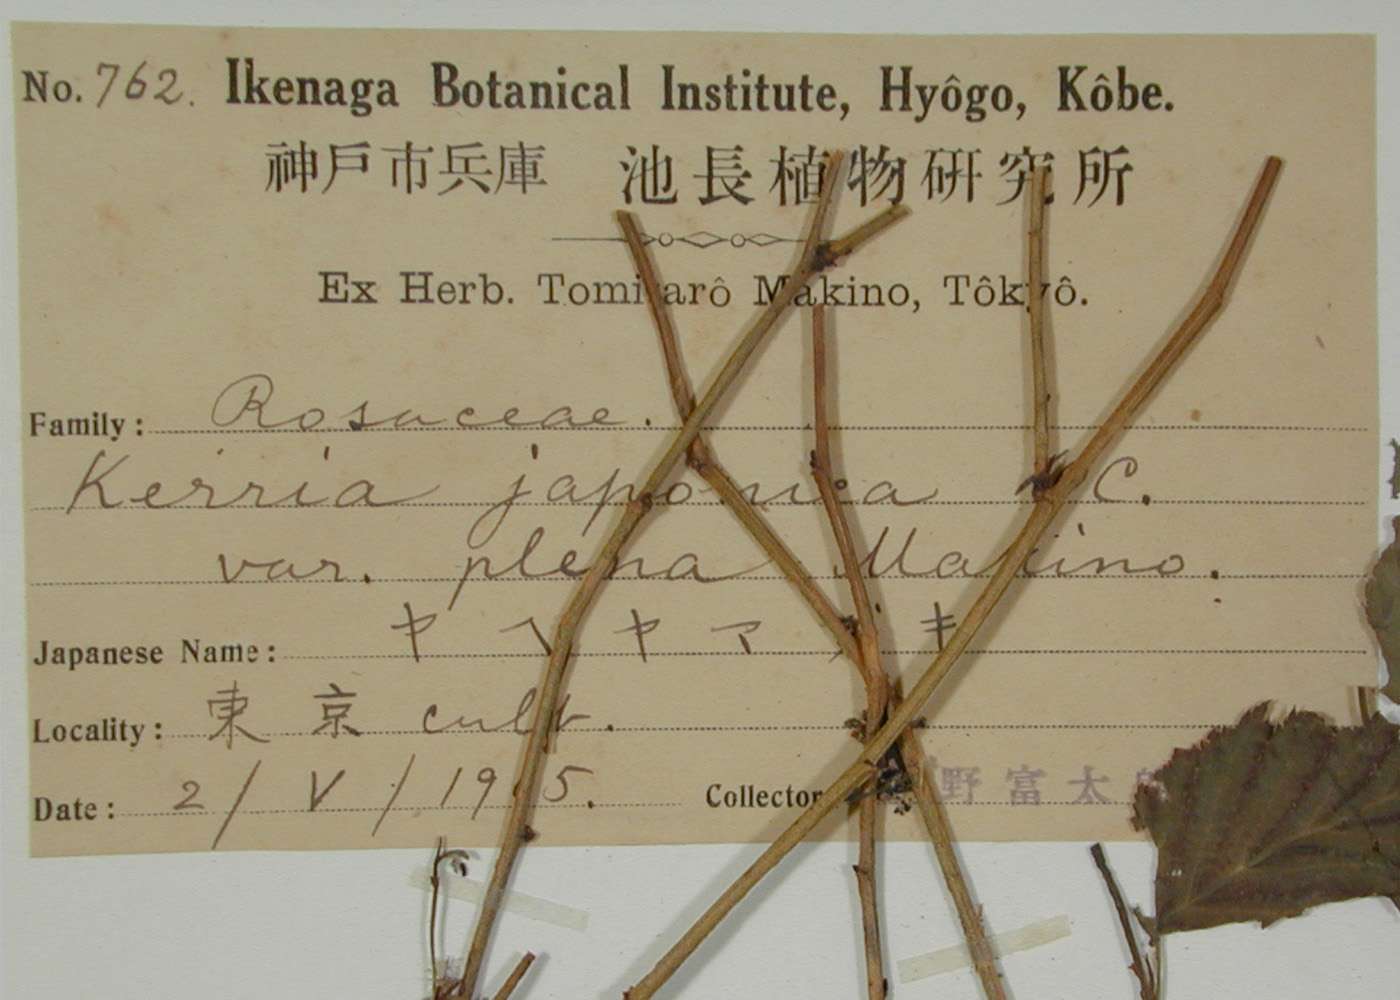 No. 762. Ikenaga Botanical Institute, Hyôgo, Kôbe.
神戸市兵庫 池長植物研究所
Ex Herb. Tomitarô Makino, Tôkyô.
Family: Rosaceae.
Kerria japonica C.
var. plena Makino.
Japanese Name: ヤヘヤマ キ
Locality: 東京 cult.
Date: 2/V/19 5. Collector 野富太